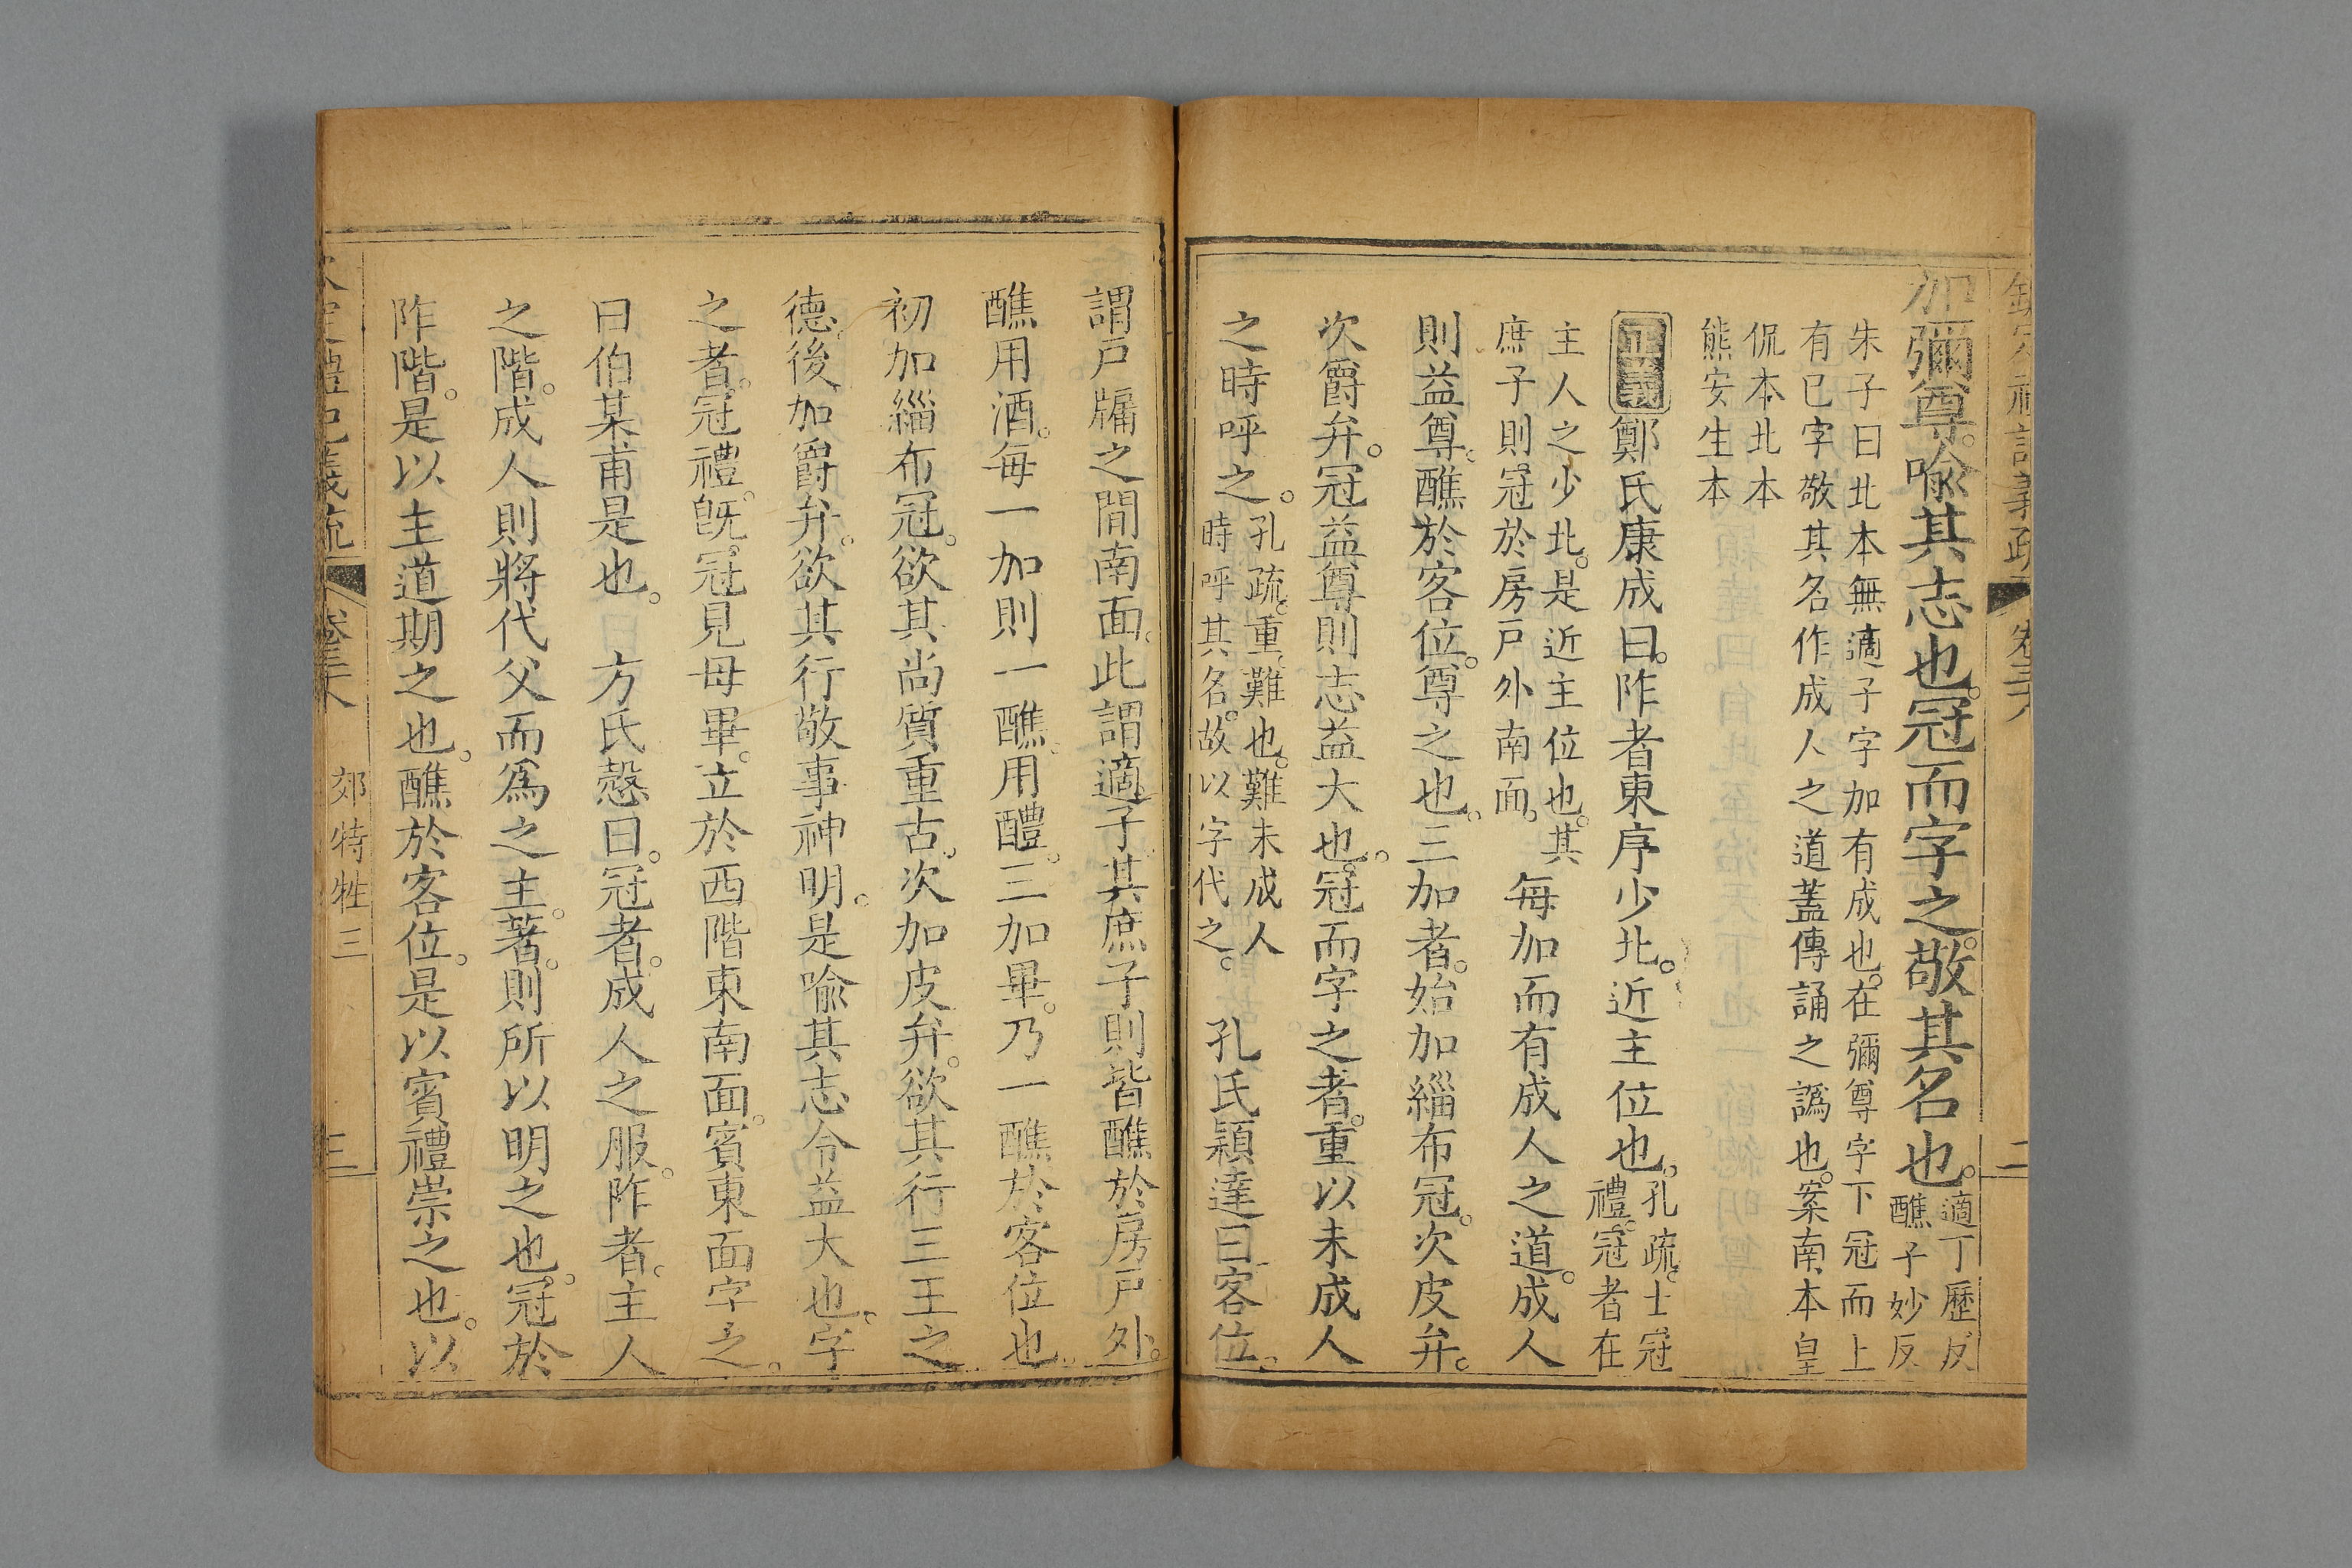 加彌尊。喻其志也。冠而字之。敬其名也。適丁歷反
醮子妙反
朱子曰北本無適子字加有成也。在彌尊字下冠而上
有已字敬其名作成人之道蓋傳誦之譌也。案南本皇
侃本北本
熊安生本
正義鄭氏康成曰。阼者東序少北。近主位也。孔疏。士冠
禮。冠者在
主人之少北。是近主位也。其
庶子則冠於房戶外南面。
每加而有成人之道。成人
則益尊。醮於客位。尊之也。三加者。始加緇布冠。次皮弁。
次爵弁。冠益尊則志益大也。冠而字之者。重以未成人
之時呼之。孔疏。重。難也。難未成人
時呼其名。故以字代之。
孔氏穎達曰客位。
謂戶牖之間南面。此謂適子。其庶子則皆醮於房戶外。
醮用酒。每一加則一醮。用醴。三加畢。乃一醮於客位也。
初加緇布冠。欲其尚質重古。次加皮弁。欲其行三王之
德。後加爵弁。欲其行敬事神明。是喻其志令益大也。字
之者。冠禮。旣冠見母畢。立於西階東南面。賓東面字之。
曰伯某甫是也。方氏慤曰。冠者。成人之服。阼者。主人
之階。成人則將代父而爲之主。著。則所以明之也。冠於
阼階。是以主道期之也。醮於客位。是以賓禮崇之也。以
郊特牲三
三